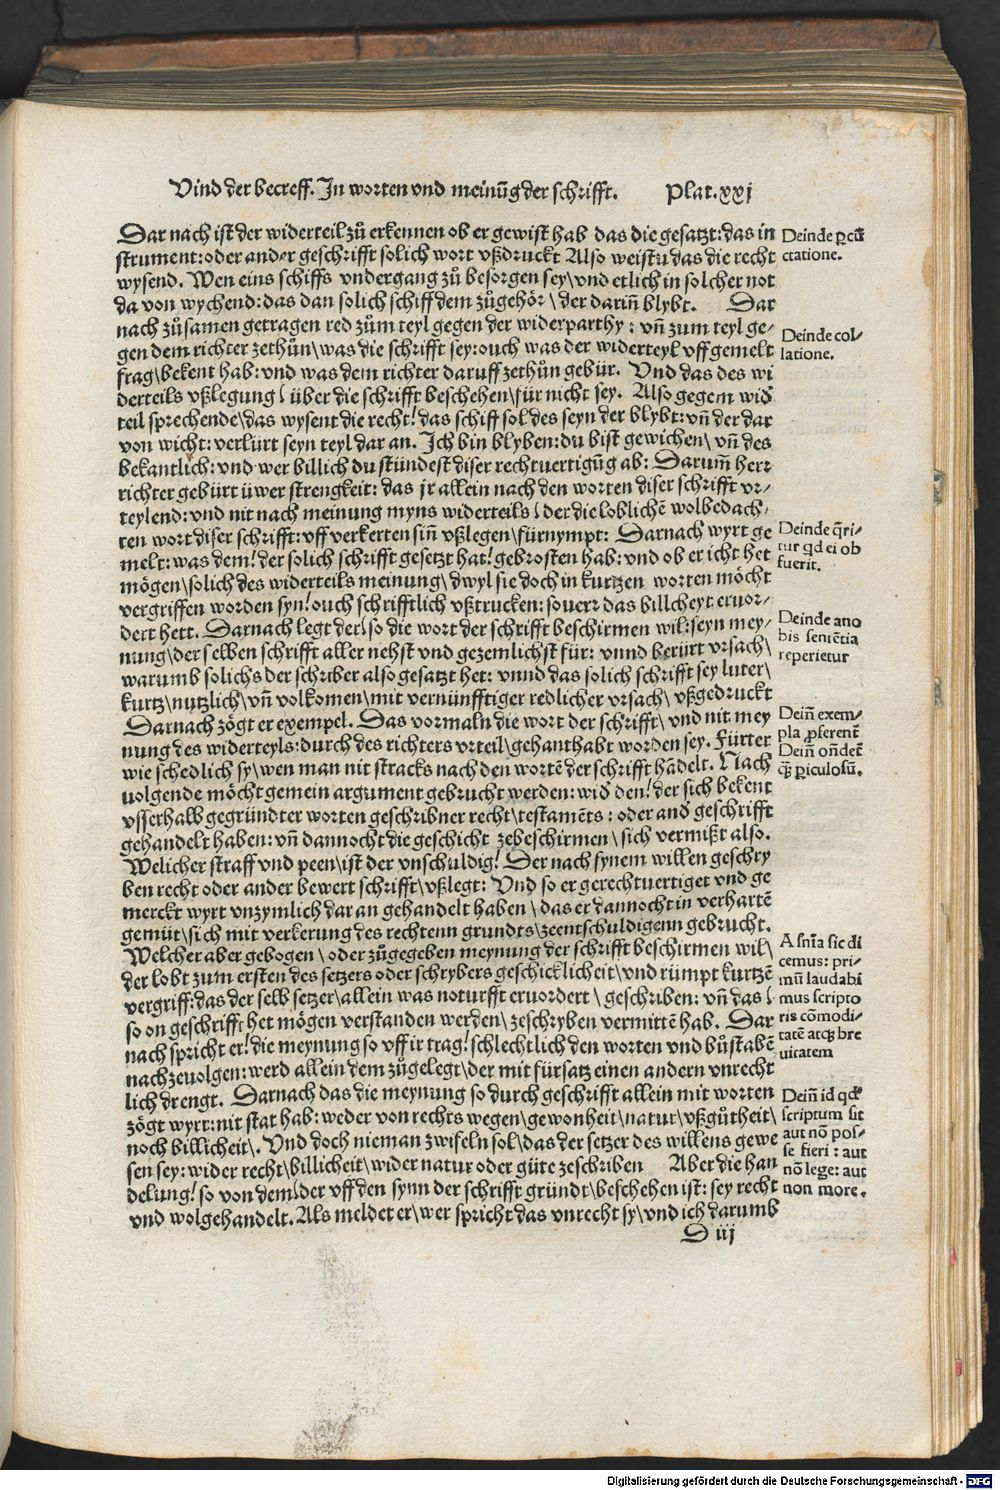 Vind der betreff. In worten vnd meinūg der schrifft. Plat.xxj
Dar nach ist der widerteil zů erkennen ob er gewist hab das die gesatzt: das in
strument: oder ander geschrifft solich wort vßdruckt Also weistu das die recht
wysend. Wen eins schiffs vndergang zů besorgen sey\ vnd etlich in solcher not
da von wychend: das dan solich schiff dem zůgehör \ der darin̄ blybt. Dar
nach zůsamen getragen red zům teyl gegen der widerparthy: vn̄ zum teyl ge-
gen dem richter zethůn\ was die schrifft sey: ouch was der widerteyl vff gemelt
frag\ bekent hab: vnd was dem richter daruff zethůn gebür. Vnd das des wi
derteils vßlegung/ über die schrifft beschehen\ für nicht sey. Also gegem wid̄
teil sprechende\ das wysent die recht! das schiff sol des seyn der blybt: vn̄ der dar
von wicht: verlürt seyn teyl dar an. Ich bin blyben: du bist gewichen\ vn̄ des
bekantlich: vnd wer billich du stündest diser rechtuertigūg ab: Darum̄ herr
richter gebürt üwer strengkeit: das jr allein nach den worten diser schrifft vr-
teylend: vnd nit nach meinung myns widerteils/ der die loblichē wolbedach-
ten wort diser schrifft: vff verkerten sin̄ vßlegen\ fürnympt: Darnach wyrt ge
melt: was dem! der solich schrifft gesetzt hat! gebrosten hab: vnd ob er icht het
mögen\ solich des widerteils meinung\ dwyl sie doch in kurtzen worten möcht
vergriffen worden syn! ouch schrifftlich vßtrucken: souerr das billcheyt eruor-
dert hett. Darnach legt der/ so die wort der schrifft beschirmen wil: seyn mey-
nung\ der selben schrifft aller nehst vnd gezemlichst für: vnnd berürt vrsach\
warumb solichs der schriber also gesatzt het: vnnd das solich schrifft sey luter\
kurtz\ nutzlich\ vn̄ volkomen\ mit vernünfftiger redlicher vrsach\ vßgedruckt
Darnach zögt er exempel. Das vormaln die wort der schrifft\ vnd nit mey
nung des widerteyls: durch des richters vrteil\ gehanthabt worden sey. Fürter
wie schedlich sy\ wen man nit stracks nach den wortē der schrifft hādelt. Nach
uolgende möcht gemein argument gebrucht werden: wid̄ den! der sich bekent
vsserhalb gegründter worten geschribner recht\ testamēts: oder and̄ geschrifft
gehandelt haben: vn̄ dannocht die geschicht zebeschirmen\ sich vermißt also.
Welicher straff vnd peen\ ist der vnschuldig! Der nach synem willen geschry
ben recht oder ander bewert schrifft\ vßlegt: Vnd so er gerechtuertiget vnd ge
merckt wyrt vnzymlich dar an gehandelt haben\ das er dannocht in verhartē
gemüt\ sich mit verkerung des rechtenn grundts\ zeentschuldigenn gebrucht.
Welcher aber gebogen\ oder zůgegeben meynung der schrifft beschirmen wil\
der lobt zum ersten des setzers oder schrybers geschicklicheit\ vnd rümpt kurtzē
vergriff: das der selb setzer/ allein was noturfft eruordert\ geschriben: vn̄ das/
so on geschrifft het mögen verstanden werden\ zeschryben vermittē hab. Dar
nach spricht er! die meynung so vff ir trag! schlechtlich den worten vnd bůstabē
nachzeuolgen: werd allein dem zůgelegt\ der mit fürsatz einen andern vnrecht
lich drengt. Darnach das die meynung so durch geschrifft allein mit worten
zögt wyrt: nit stat hab: weder von rechts wegen\ gewonheit\ natur\ vßgůtheit\
noch billicheit\. Vnd doch nieman zwifeln sol\ das der setzer des willens gewe
sen sey: wider recht\ billicheit\ wider natur oder güte zeschriben Aber die han
delung! so von dem/ der vff den synn der schrifft gründt\ beschehen ist: sey recht
vnd wolgehandelt. Als meldet er\ wer spricht das vnrecht sy\ vnd ich darumb
D iij
Deinde ꝑcū
ctatione.
Deinde col-
latione.
Deinde q̄ri-
tur qd ei ob
fuerit.
Deinde ano
bis sentētia
reperietur
Dein̄ exem-
pla ꝓferent̄
Dein̄ on̄det̄
q̄ꝫ ꝑiculosū.
A sn̄ia sic di
cemus: pri-
mū laudabi
mus scripto
ris cōmodi-
tatē atqꝫ bre
uitatem
Dein̄ id qd̄
scriptum sit
aut nō pos-
se fieri: aut
nō lege: aut
non more.
Digitalisierung gefördert durch die Deutsche Forschungsgemeinschaft - DFG